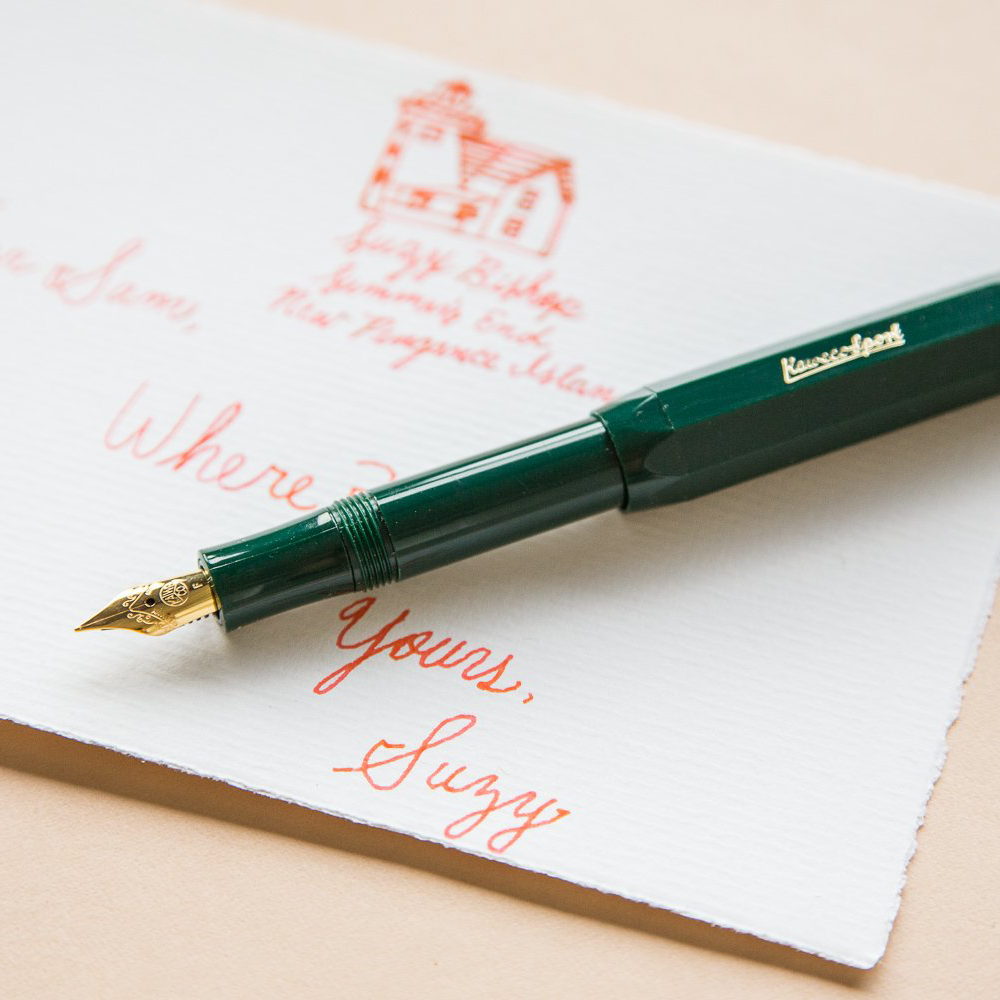 Suzy Bishop
Summer's End
New Penzance Island
Sam,
Where
Yours,
Suzy
Kaweco Sport